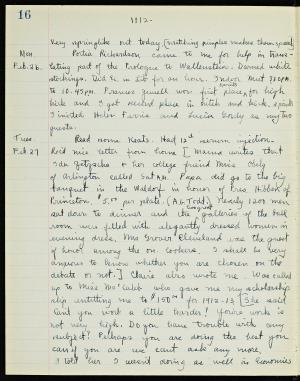 16
1912-
Very springlike out today. (
makes them speed)
Mon. Portia Richardson came to me for help in trans-
Feb. 26. lating part of the Prologue to Wallenstein. Darned white
stockings. Did in lib for an hour. Indoor Meet 7.30 P.M.
to 10.45 P.M. Frances Jewell won first place, for high
points
kick and I got second place in hitch and kick.
I invited Helen Farrie and Lucia as my two
guests.
Tues. Read some Keats. Had 12th serum injection.
Feb. 27 Rec'd nice letter from home [Mama writes that
Ida & her college friend Miss
of Arlington called Sat. P.M. Papa did go to the big
banquet in the Waldorf in honor of Pres. Hibben of
Princeton. $5.00 per plate. (A.G. Todd) Nearly 1200 men
sat down to dinner and the galleries of the ball
room were filled with elegantly dressed women in
evening dress, Mrs Grover Cleveland was the guest
of honor among the on lookers. I shall be very
anxious to know whether you are chosen on the
debate or not.] Claire also wrote me. Was called
up to Miss McCaleb who gave me my scholarship
slip entitling me to $150.00 for 1912-13 [She said
Can't you work a little harder? Your work is
not very high. Do you have trouble with any
subject? Perhaps you are doing the best you
can if you are we can't ask any more.
I told her I wasn't doing as well in Economics